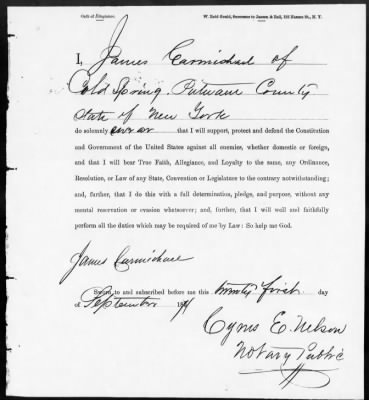 Oath of Allegiance. W. Reid Gould, Successor to Jansen & Bell, 158 Nassau St., N. Y.
I, James Carmichael of
Cold Spring. Putnam County
State of New York
do solemnly swear that I will support, protect and defend the Constitution
and Government of the United States against all enemies, whether domestic or foreign,
and that I will bear True Faith, Allegiance, and Loyalty to the same, any Ordinance,
Resolution, or Law of any State, Convention or Legislature to the contrary notwithstanding;
and, further, that I do this with a full determination, pledge, and purpose, without any
mental reservation or evasion whatsoever; and, further, that I will well and faithfully
perform all the duties which may be required of me by Law: So help me God.
James Carmichael
Sworn to and subscribed before me this twenty first day
of September 18
Cyrus E. Nelson
Notary Public